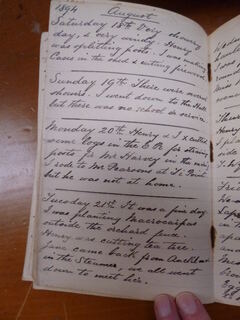 1894 August
Saturday 18th Very showery
day, & very windy. Henry
was splitting posts. I was making
Cases in the shed & cutting firewood
Sunday 19th. There were several
showers. I went down to the Hall
but there was no school or service.
Monday 20th. Henry & I x cutted
some logs in the E P. for straining
posts for Mr Harvey in the morn
I rode to Mr Pearsons at Ti Point
but he was not at home.
Tuesday 21st. It was a fine day.
I was planting Macrocarpas
outside the orchard fence.
Henry was cutting tea tree.
Jane came back from Auckland
in the Steamer, we all went
down to meet her.